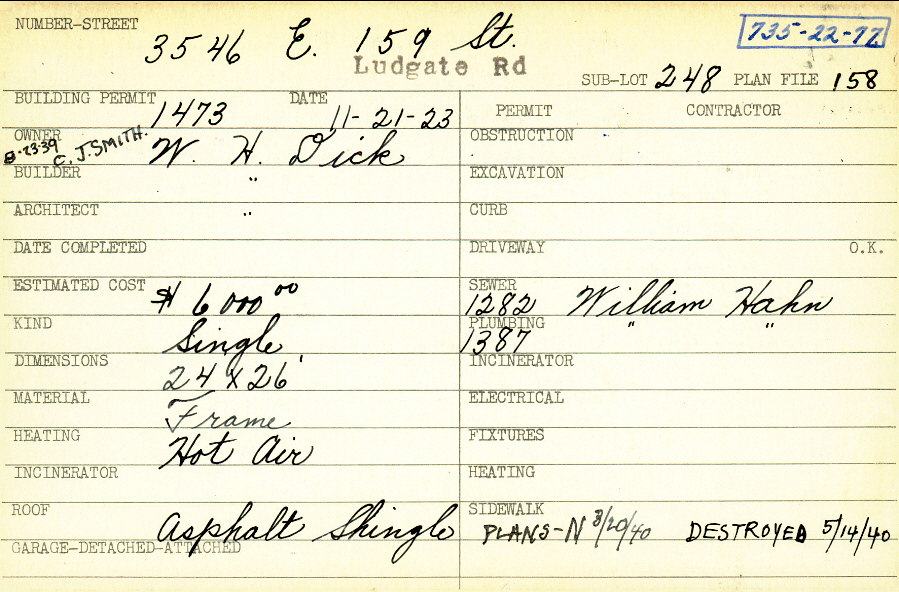 NUMBER-STREET
3546 E. 159 St.
735-22-77
Ludgate Rd
SUB-LOT 248 PLAN FILE 158
BUILDING PERMIT 1473 DATE 11-21-23
PERMIT CONTRACTOR
OWNER W. H. Dick
8-23-39 C. J. SMITH.
OBSTRUCTION
BUILDER "
EXCAVATION
ARCHITECT "
CURB
DATE COMPLETED
DRIVEWAY O.K.
ESTIMATED COST $ 6000 00
SEWER
1282 William Hahn
KIND Single
PLUMBING " "
1387
DIMENSIONS 24 x 26'
INCINERATOR
MATERIAL Frame
ELECTRICAL
HEATING Hot Air
FIXTURES
INCINERATOR
HEATING
ROOF Asphalt Shingle
SIDEWALK
PLANS-N 3/20/40 DESTROYED 5/14/40
GARAGE-DETACHED-ATTACHED